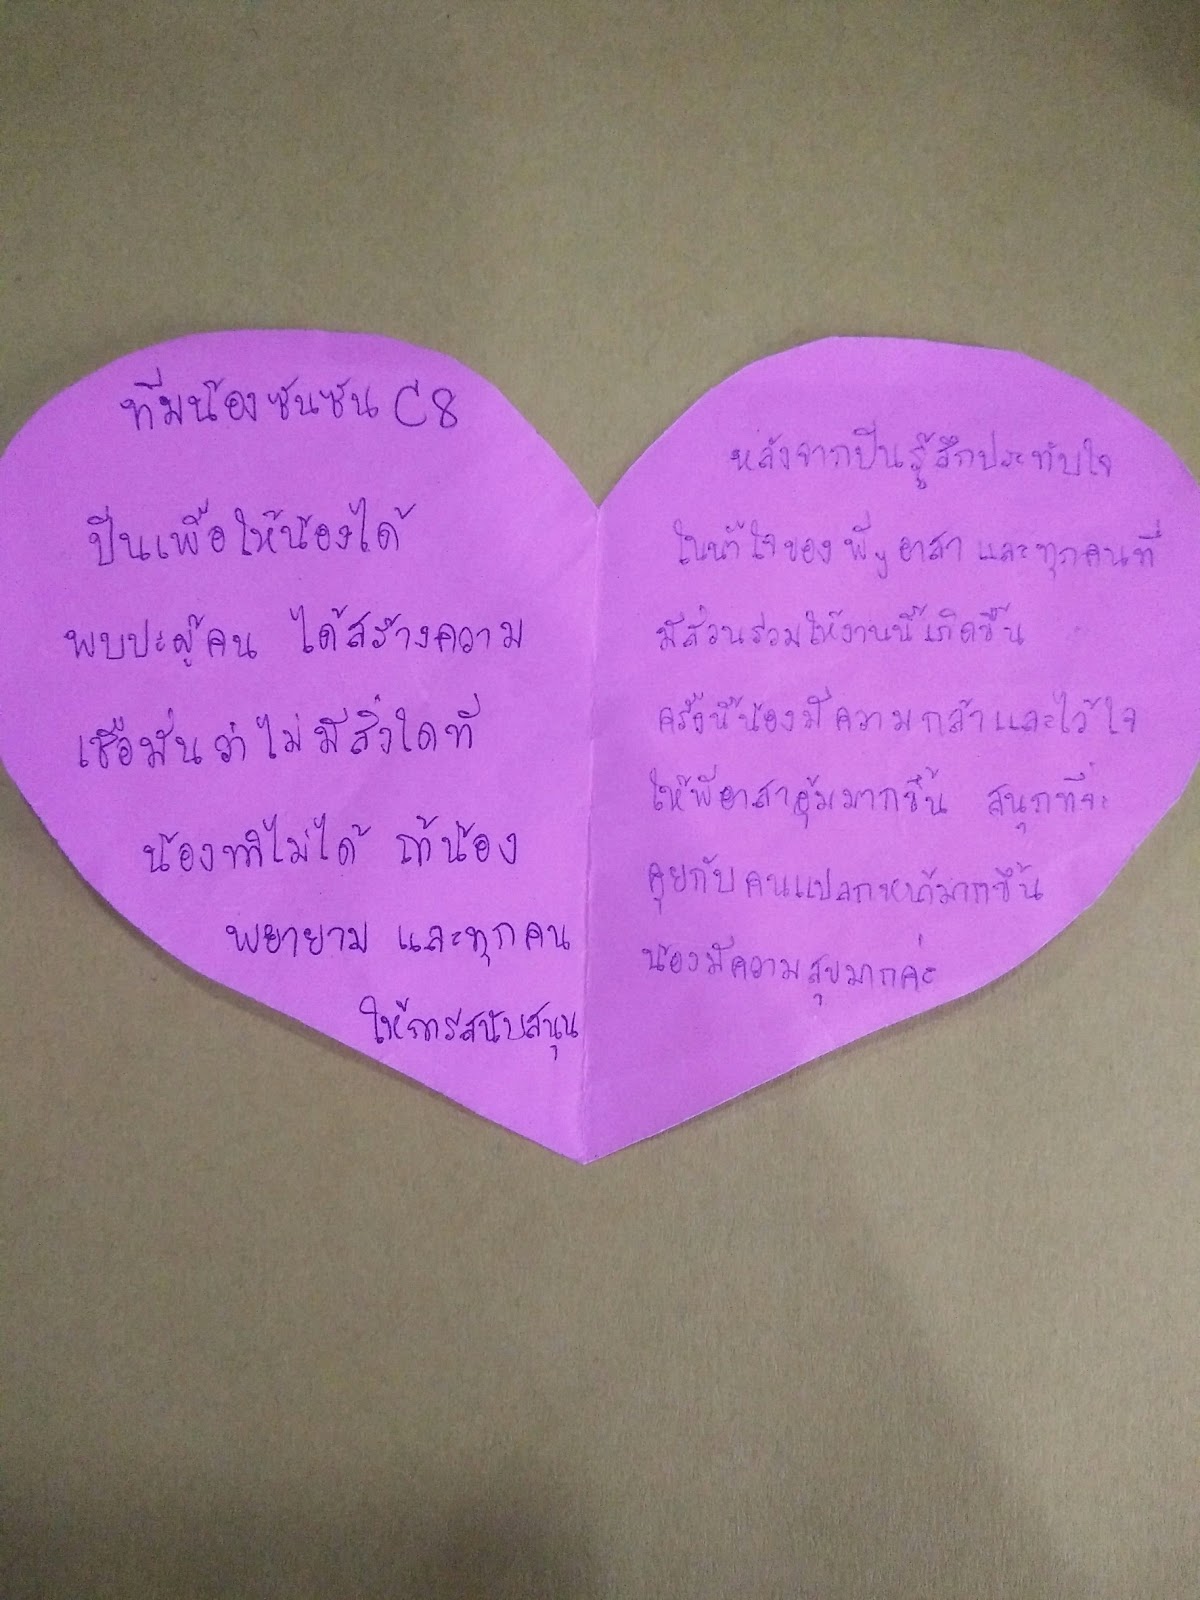 ทีมน้องซันซัน C8
ปีนเพื่อให้น้องได้
พบปะผู้คน ได้สร้างความ
เชื่อมั่นว่าไม่มีสิ่งใดที่
น้องทำไม่ได้ ถ้าน้อง
พยายาม และทุกคน
ให้การสนับสนุน
หลังจากปีนรู้สึกประทับใจ
ในน้ำใจของพี่ๆอาสา และทุกคนที่
มีส่วนร่วมให้งานนี้เกิดขึ้น
ครั้งนี้น้องมีความกล้าและไว้ใจ
ให้พี่อาสาอุ้มมากขึ้น สนุกที่จะ
คุยกับคนแปลกหน้ามากขึ้น
น้องมีความสุขมากค่ะ